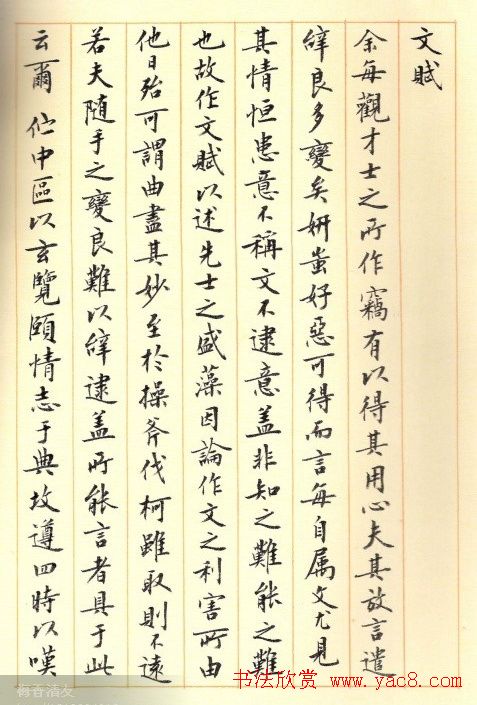 文賦
余每觀才士之所作竊有以得其用心夫其放言遣
辭良多變矣妍蚩好惡可得而言每自属文尤見
其情恒患意不稱文不逮意盖非知之難能之難
也故作文賦以述先士之盛藻因論作文之利害所由
他日殆可謂曲盡其妙至於操斧伐柯雖取則不遠
若夫隨手之變良難以辭逮盖所能言者具于此
云爾 佇中區以玄覽頤情志于典坟遵四時以嘆
梅香清友
书法欣赏 www.yac8.com